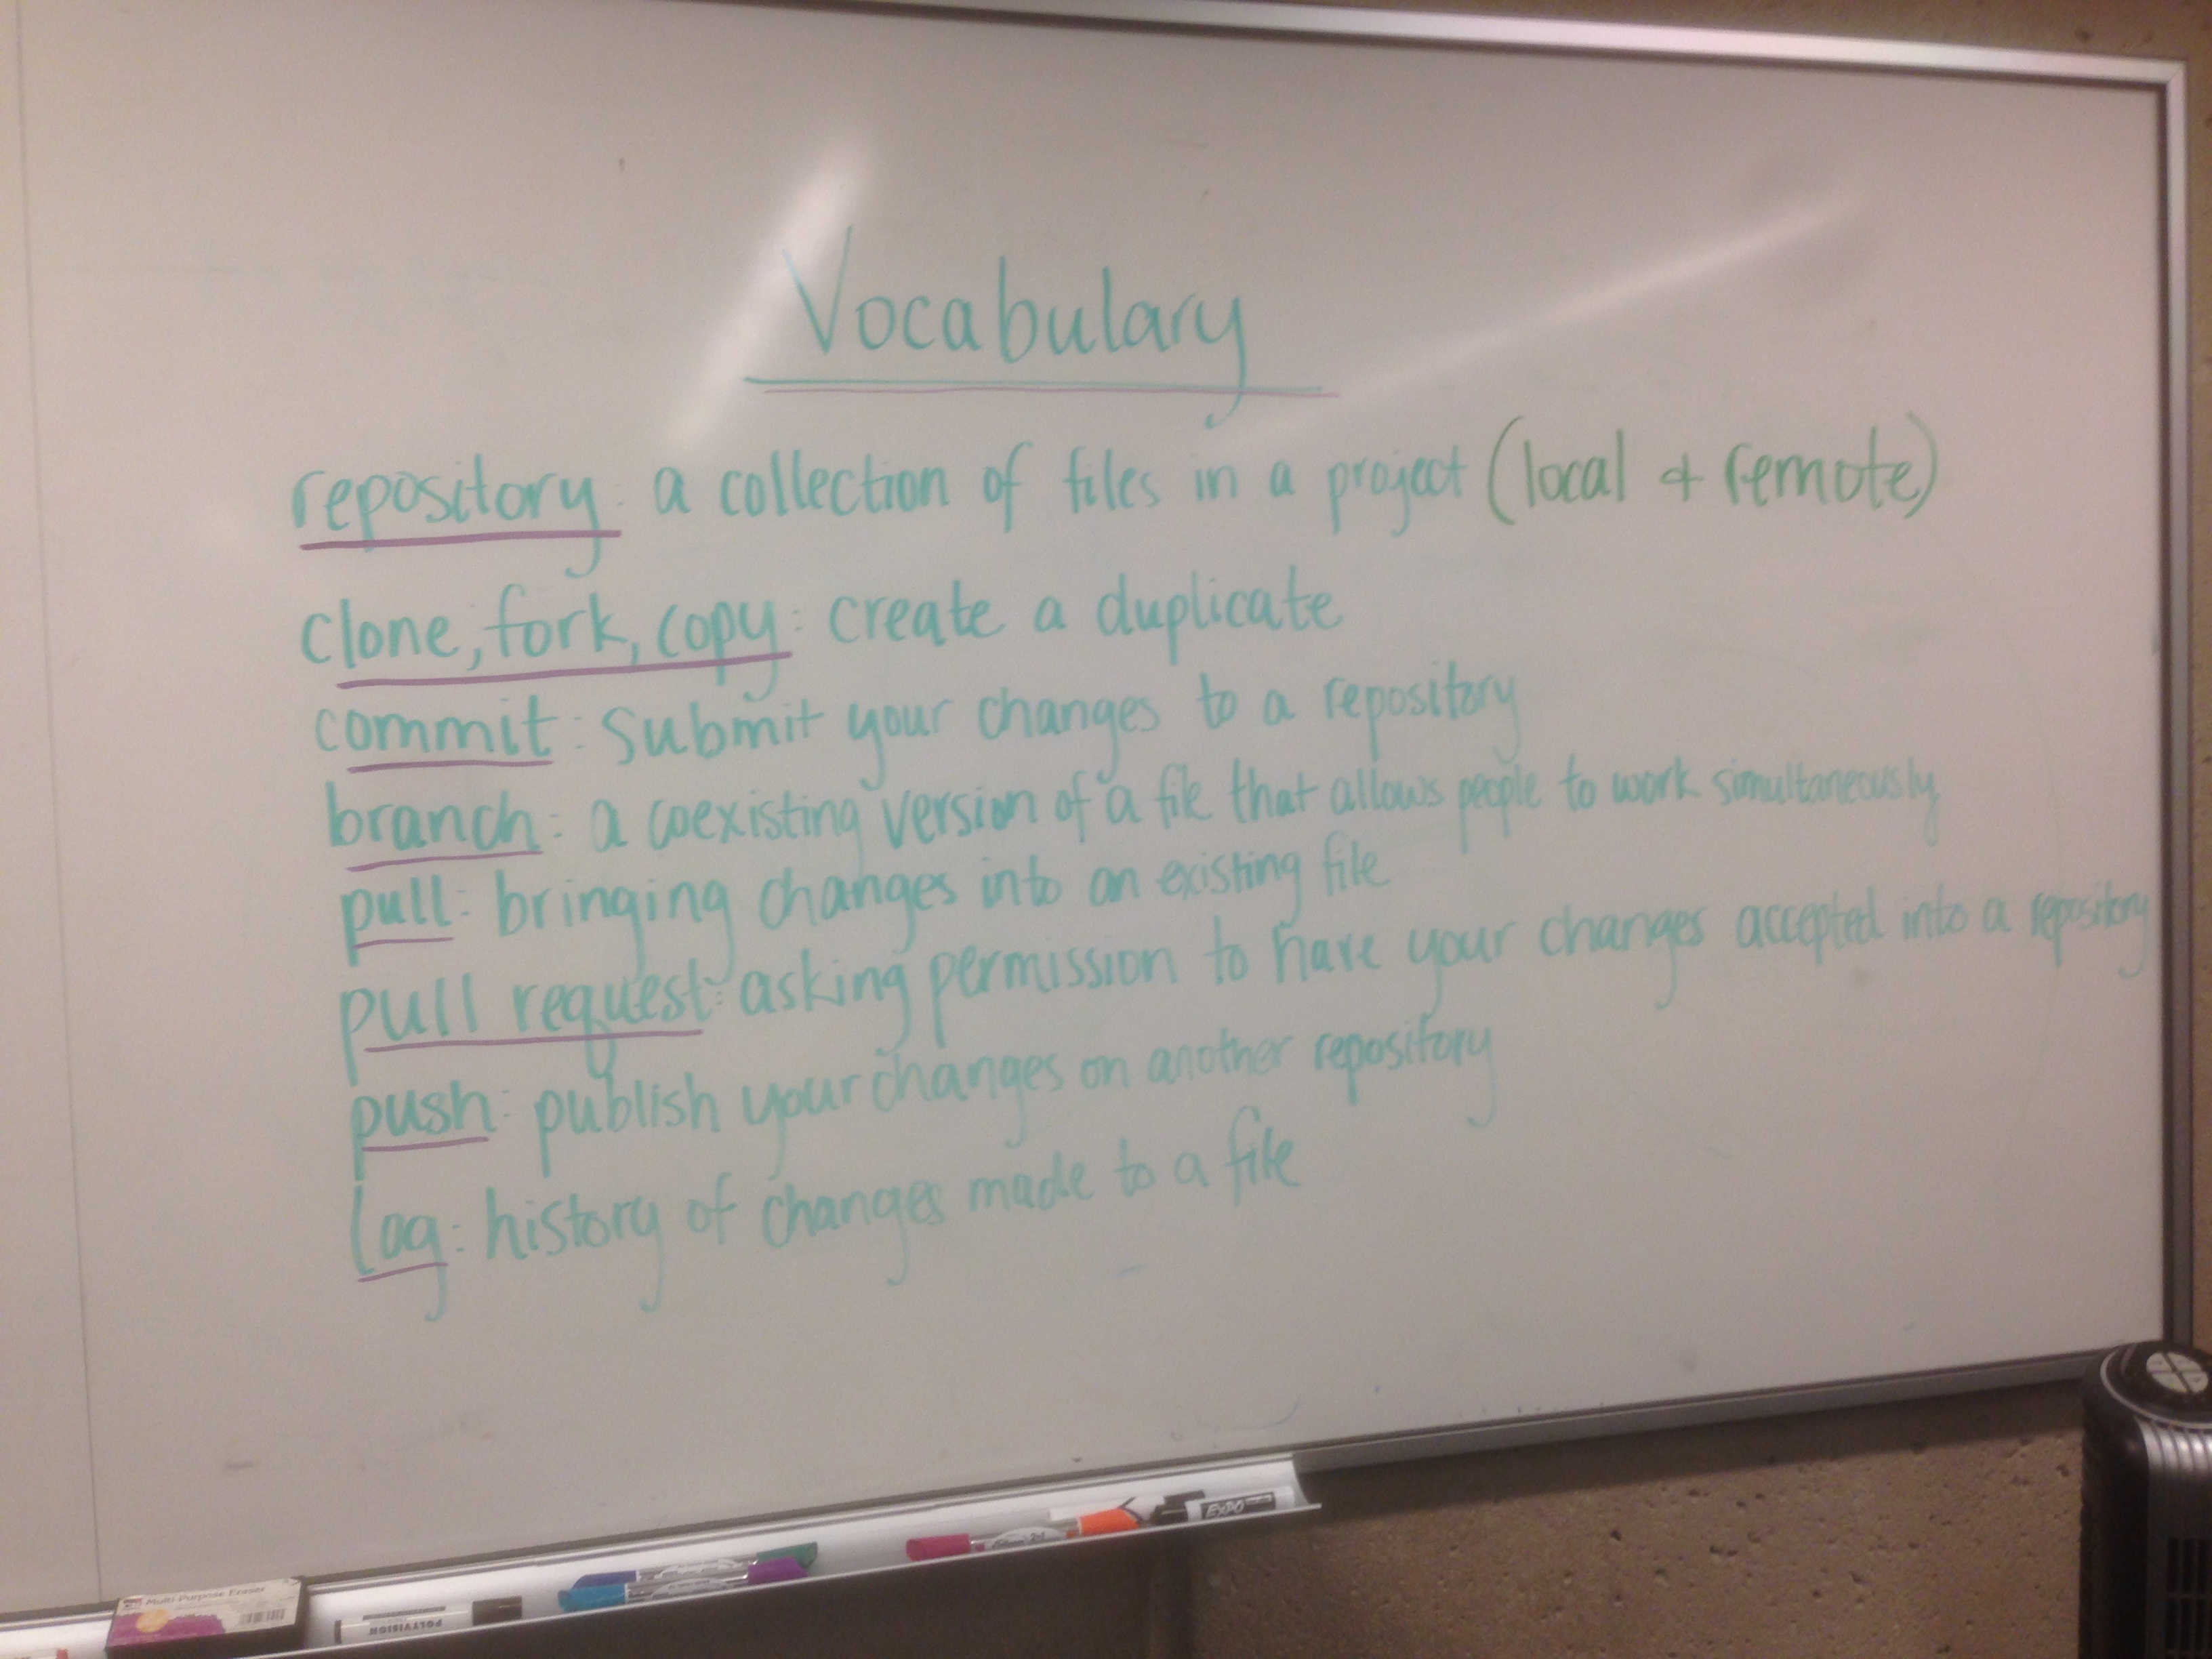 Vocabulary
repository: a collection of files in a project (local + remote)
clone, fork, copy: create a duplicate
commit: submit your changes to a repository
branch: a coexisting version of a file that allows people to work simultaneously
pull: bringing changes into an existing file
pull request: asking permission to have your changes accepted into a repository
push: publish your changes on another repository
log: history of changes made to a file
EXPO
Multi-Purpose Eraser
POLYVISION